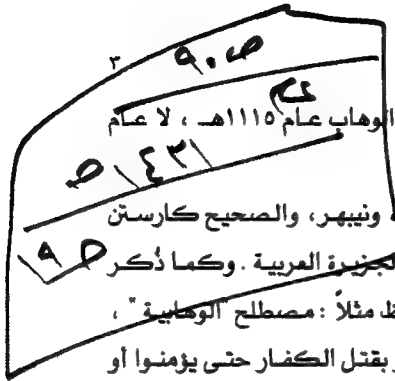 ٣
ص ٩٠
الوهاب عام ١١١٥هـ ، لا عام
١٤٣١ ص
ونيبهر، والصحيح كارستن
ص ٩١
الجزيرة العربية . وكما ذُكر
مثلاً : مصطلح "الوهابية " ،
بقتل الكفار حتى يؤمنوا أو